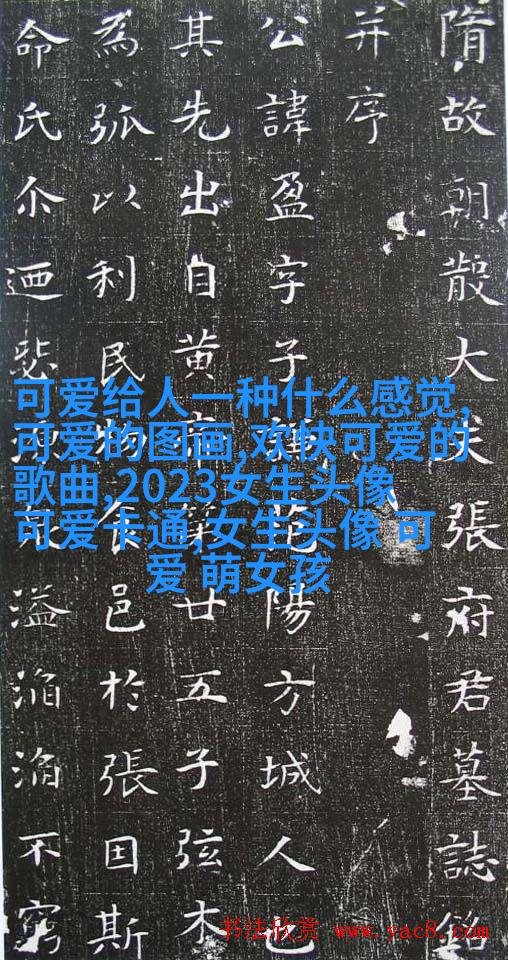 隋故朝散大夫張府君墓誌銘
并序
公諱盈字子范陽方城人也
其先出自黄帝第廿五子弦木
為弧以利民物食邑於張因斯
命氏尒迺溢滔滔不窮
可爱给人一种什么感觉,
可爱的图画,欢快可爱的
歌曲,2023女生头像
可爱卡通,女生头像 可
爱 萌女孩
书法欣赏 www.yac8.com